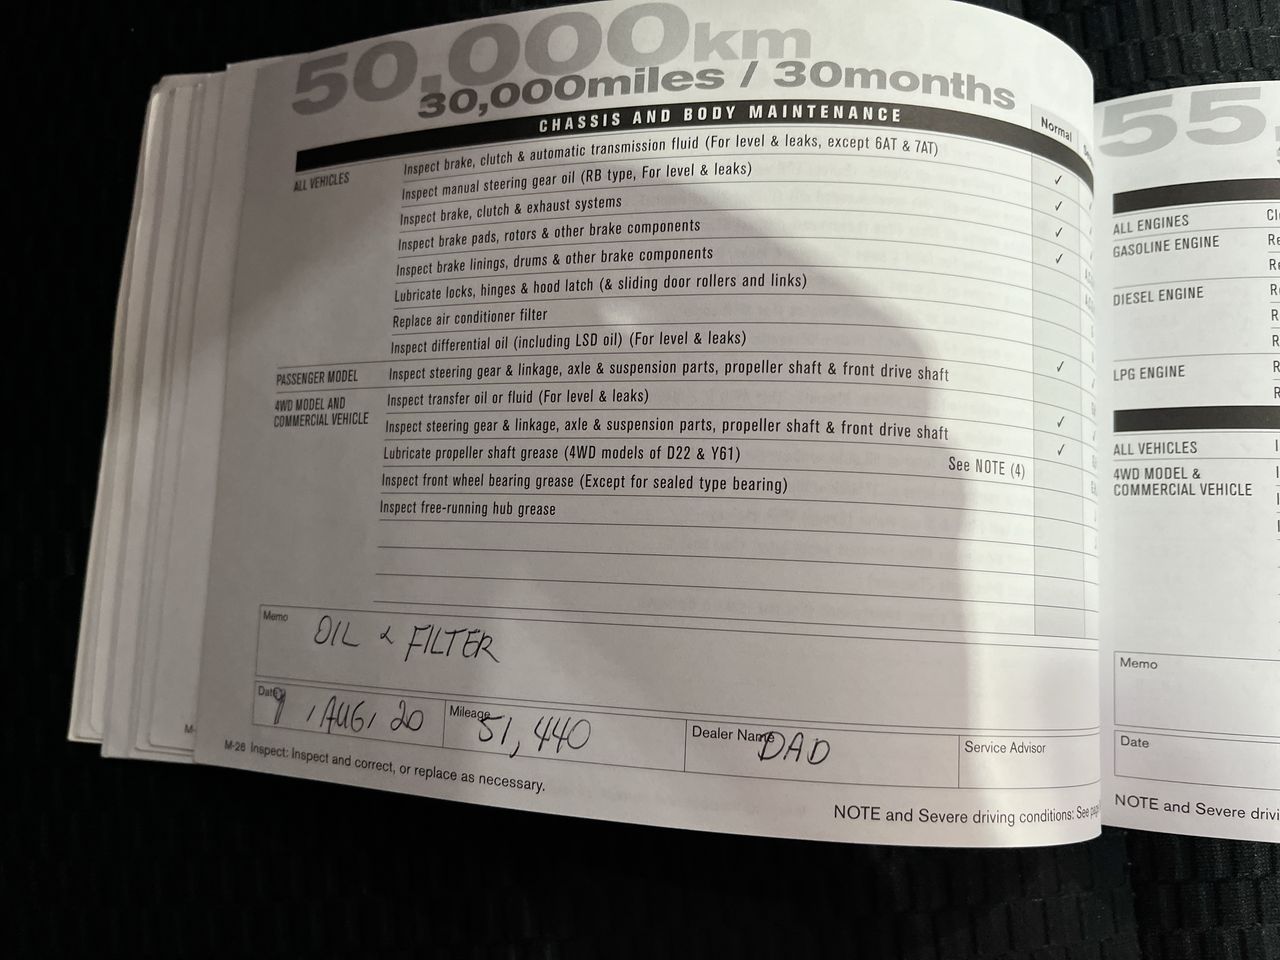 50,000km
30,000miles / 30months
CHASSIS AND BODY MAINTENANCE
Normal
ALL VEHICLES
Inspect brake, clutch & automatic transmission fluid (For level & leaks, except 6AT & 7AT)
Inspect manual steering gear oil (RB type, For level & leaks) ✓
Inspect brake, clutch & exhaust systems ✓
Inspect brake pads, rotors & other brake components ✓
Inspect brake linings, drums & other brake components ✓
Lubricate locks, hinges & hood latch (& sliding door rollers and links)
Replace air conditioner filter
Inspect differential oil (including LSD oil) (For level & leaks)
PASSENGER MODEL Inspect steering gear & linkage, axle & suspension parts, propeller shaft & front drive shaft ✓
4WD MODEL AND
COMMERCIAL VEHICLE
Inspect transfer oil or fluid (For level & leaks)
Inspect steering gear & linkage, axle & suspension parts, propeller shaft & front drive shaft ✓
Lubricate propeller shaft grease (4WD models of D22 & Y61) See NOTE (4) ✓
Inspect front wheel bearing grease (Except for sealed type bearing)
Inspect free-running hub grease
Memo
OIL & FILTER
Date 9, AUG, 20
Mileage 51,440
Dealer Name DAD
Service Advisor
M-26 Inspect: Inspect and correct, or replace as necessary.
NOTE and Severe driving conditions: See
55
ALL ENGINES
GASOLINE ENGINE
DIESEL ENGINE
LPG ENGINE
ALL VEHICLES
4WD MODEL &
COMMERCIAL VEHICLE
Memo
Date
NOTE and Severe